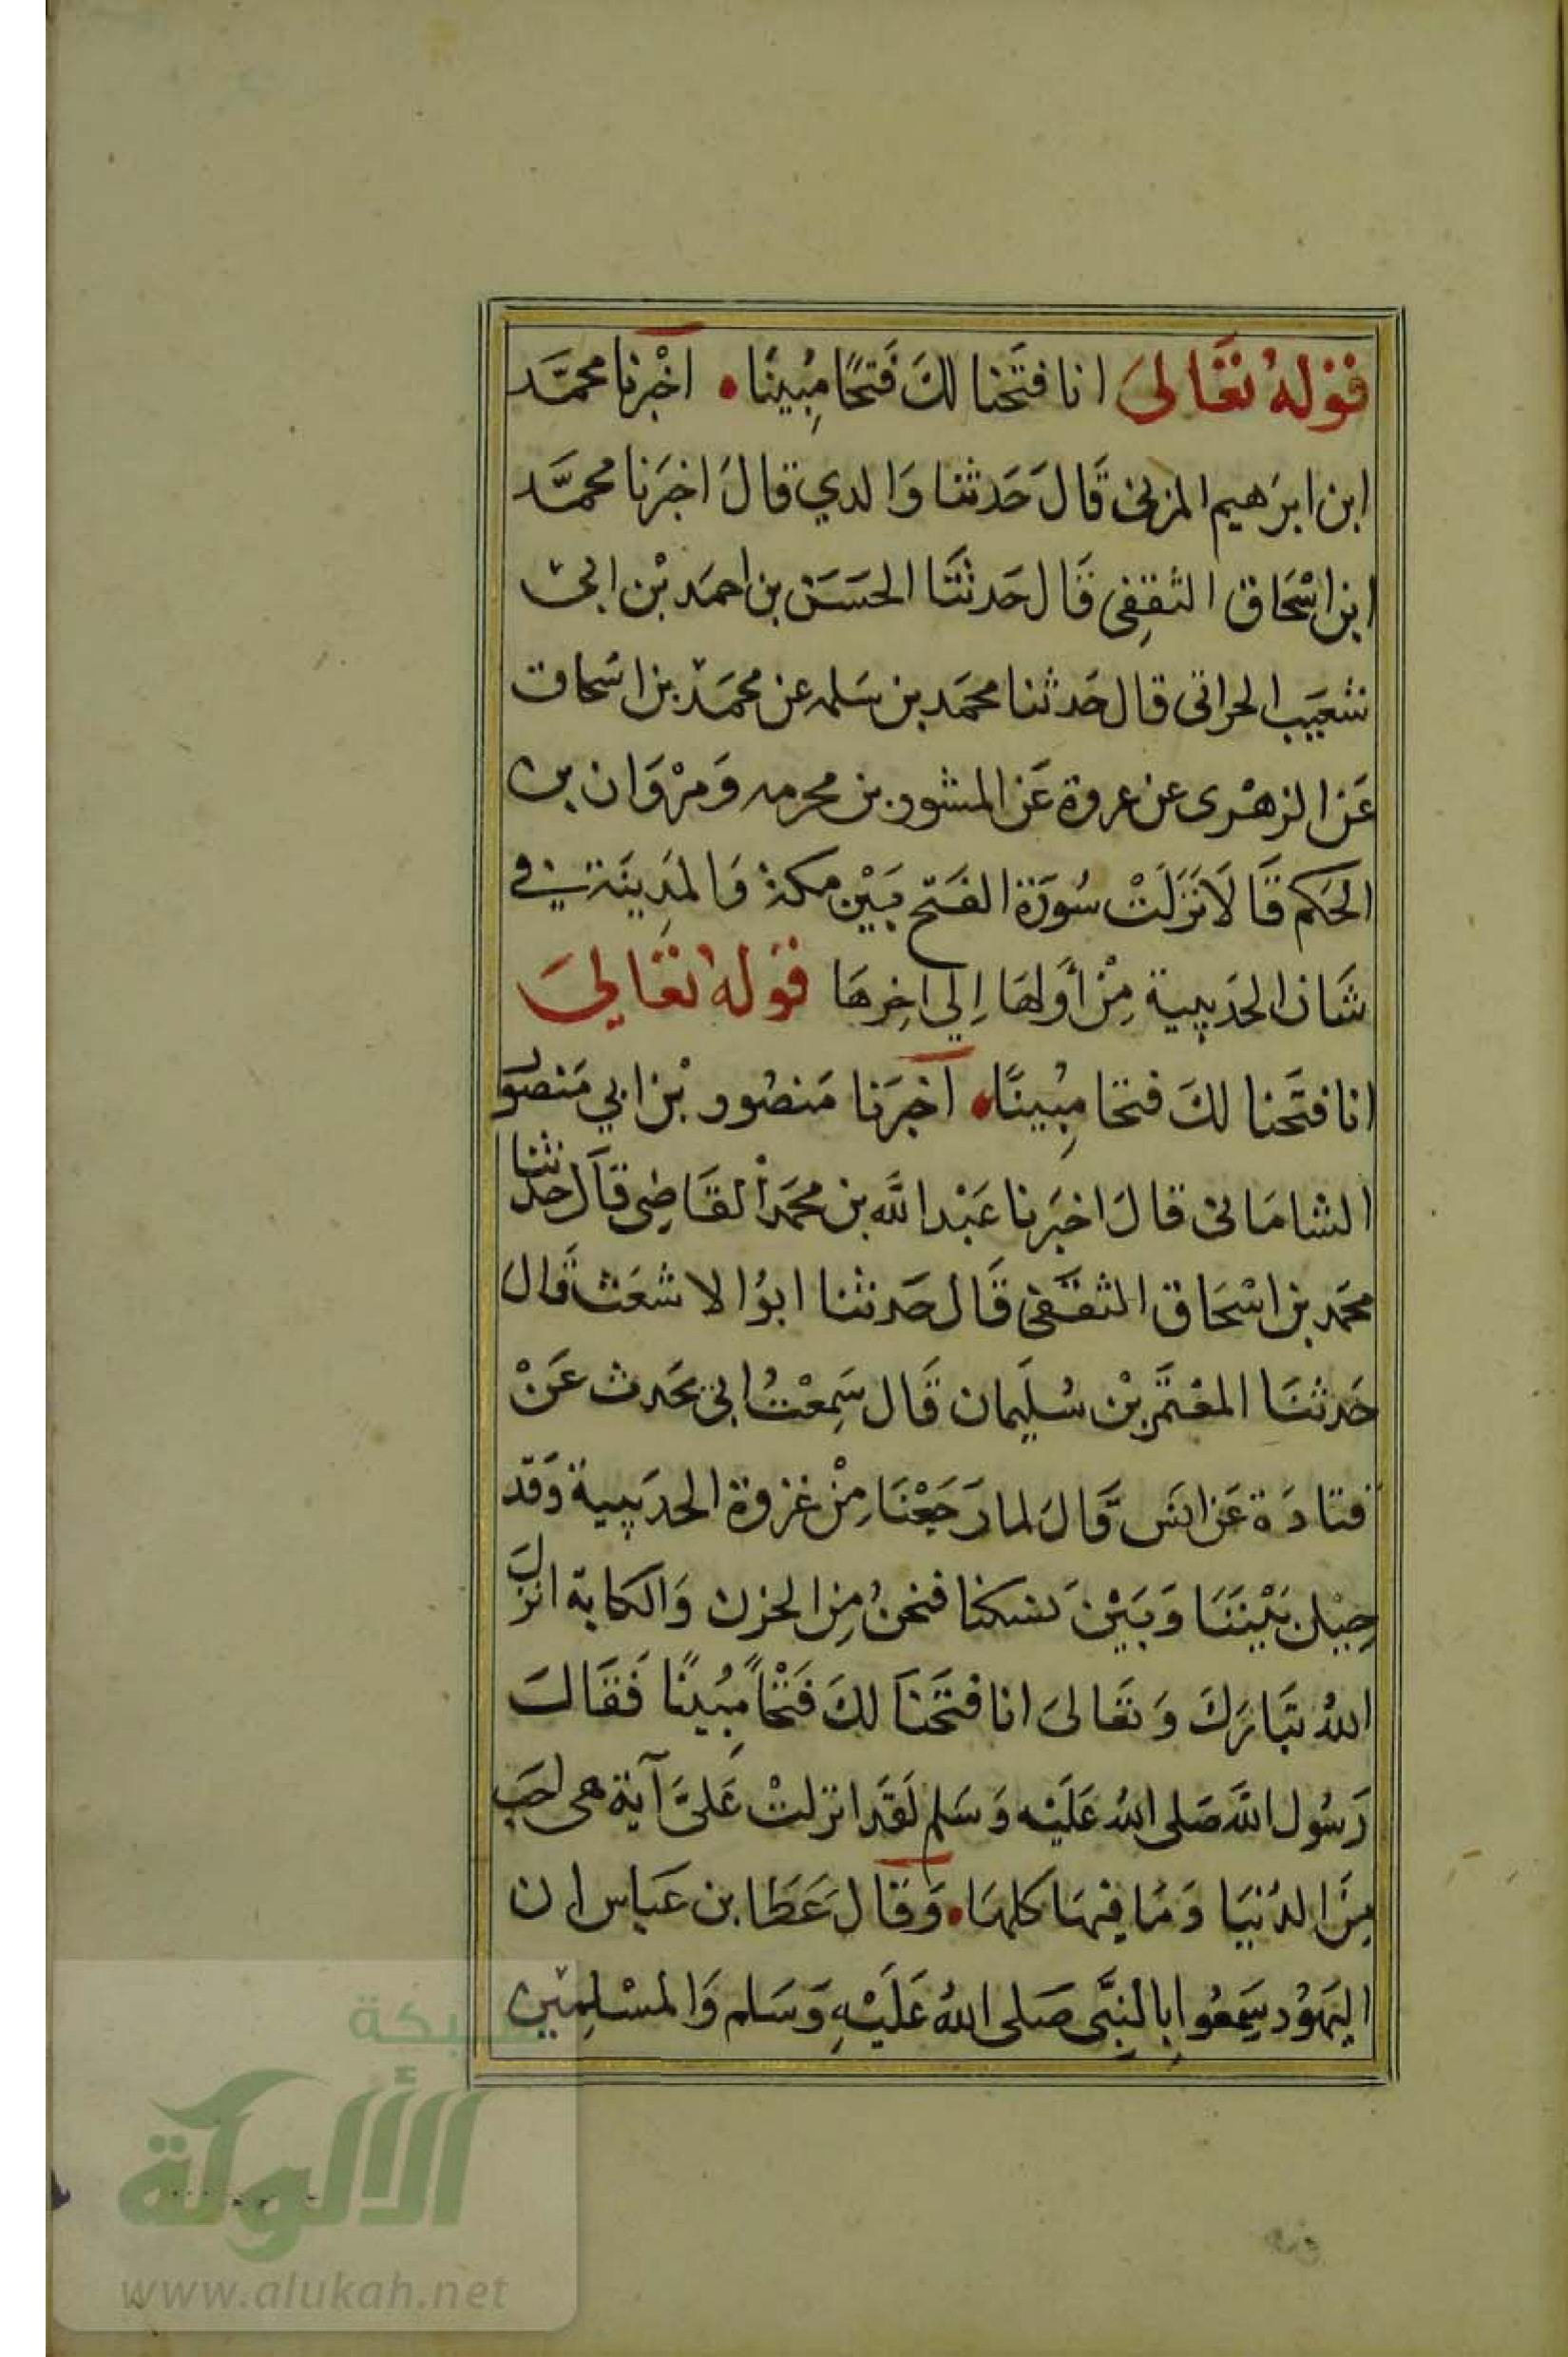 قوله تعالى انا فتحنا لك فتحًا مبينًا. اخبرنا محمّد
ابن ابرهيم المزني قال حدثنا والدي قال اخبرنا محمّد
ابن اسْحاق الثقفي قال حدثنا الحسن بن احمد بن ابي
شعيب الحراني قال حدثنا محمد بن سلمه عن محمد بن اسحاق
عن الزهرى عن عروة عن المشور بن محرمه ومرْوان بن
الحكم قالا نزلت سورة الفتح بين مكة والمدينة في
شان الحديبية من أولها إلي اخرها قوله تعالي
انا فتحنا لك فتحا مبينًا. اخبرنا منصور بن ابي منصو
الشاماني قال اخبرنا عبد الله بن محمد القاضي قال حدثنا
محمد بن اسْحاق الثقفي قال حدثنا ابوا لاشعث قال
حدثنا المعتمر بن سليمان قال سمعت ابي يحدث عن
قتادة عن انس قال لما رجعنا من غزوة الحديبية وقد
حيل بيننا وبين نسكنا فنحن من الحزن والكابة انزل
الله تبارك وتعالى انا فتحنا لك فتحًا مبينًا فقال
رسول الله صلى الله عليه وسلم لقد انزلت علىّ آية هى احب
من الدنيا وما فيها كلها. وقال عطا بن عباس ان
اليهود سمعوا بالنبي صلى الله عليه وسلم والمسلمين
شبكة
الألوكة
www.alukah.net